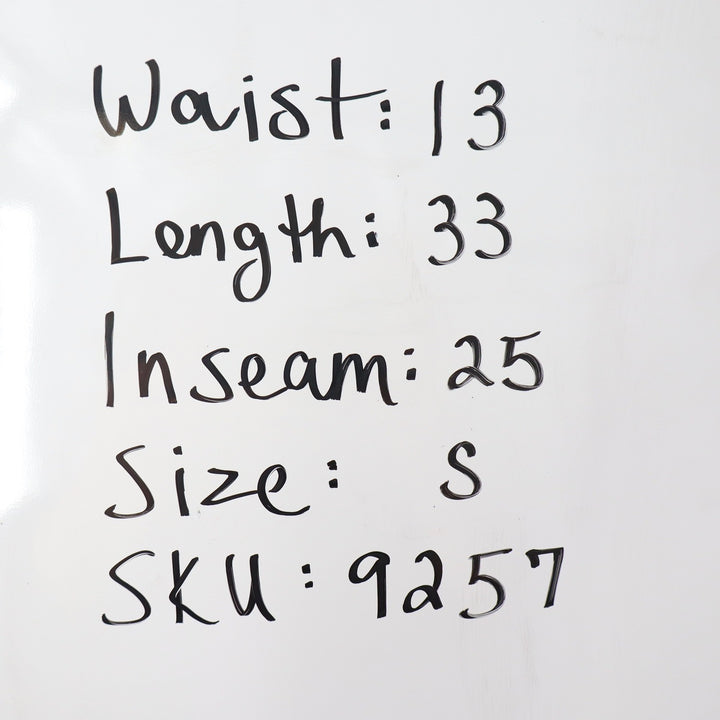 Waist: 13
Length: 33
Inseam: 25
Size: S
SKU: 9257